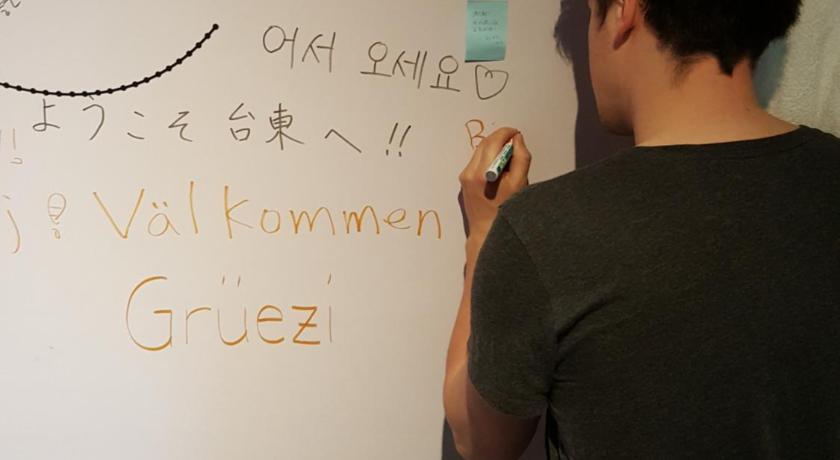 어서 오세요♡
ようこそ台東へ!!
Välkommen
Grüezi